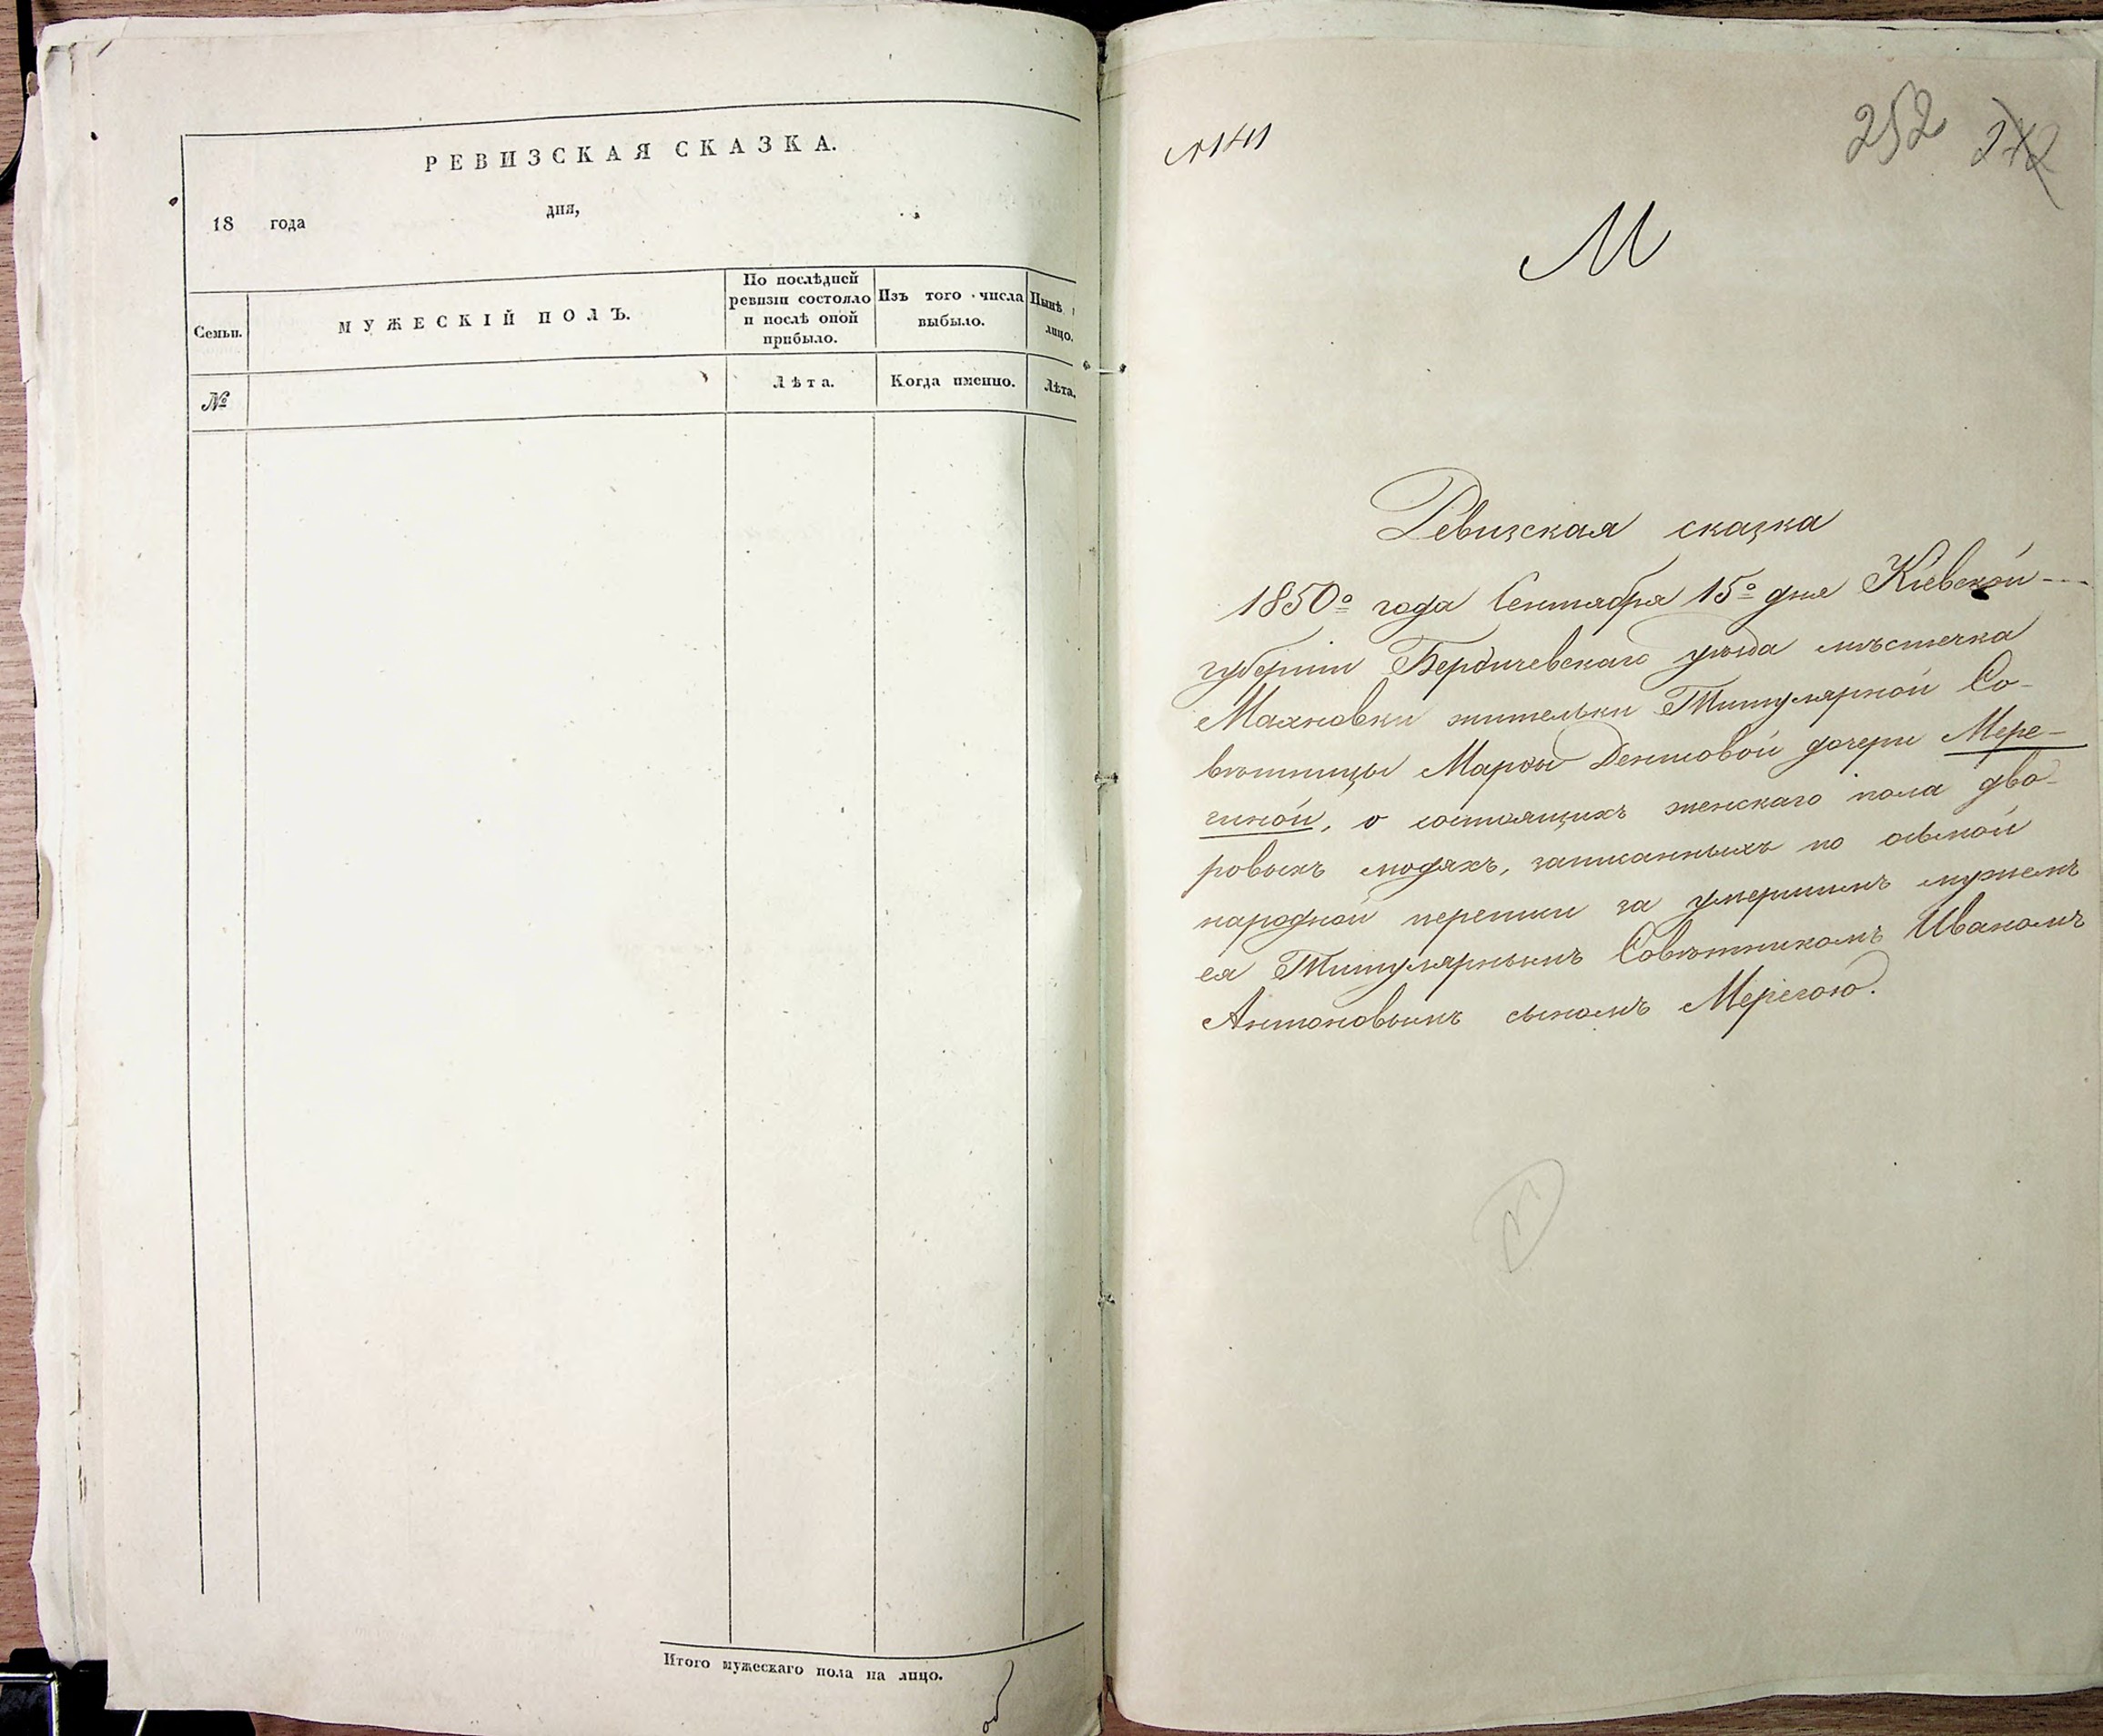 РЕВИЗСКАЯ СКАЗКА.
18 года дня,
Семьи.
МУЖЕСКІЙ ПОЛЪ.
По послѣдней
ревизіи состояло
и послѣ оной
прибыло.
Изъ того числа
выбыло.
Нынѣ
лицо.
№
Лѣта.
Когда именно.
Лѣта.
Итого мужескаго пола на лицо.
№141
252 272
М
Ревизская сказка
1850о года Сентября 15о дня Кіевской
губерніи Бердичевскаго уѣзда мѣстечка
Махновки жительки Титулярной Со-
вѣтницы Марѳы Денисовой дочери Мере-
гиной, о состоящихъ женскаго пола дво-
ровыхъ людяхъ, записанныхъ по осьмой
народной переписи за умершимъ мужемъ
ея Титулярнымъ Совѣтникомъ Иваномъ
Антоновымъ сыномъ Мерегою.